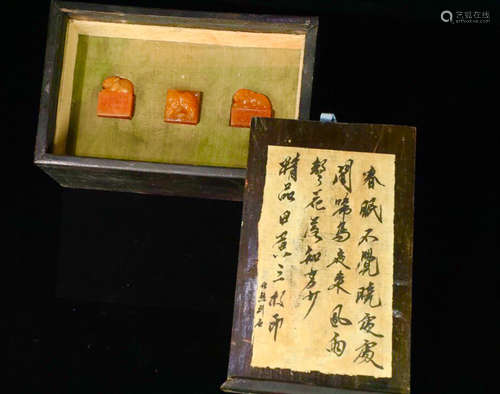 春眠不覺曉處處
聞啼鳥夜來風雨
聲花落知多少
精品田黃三枚印
艺狐在线